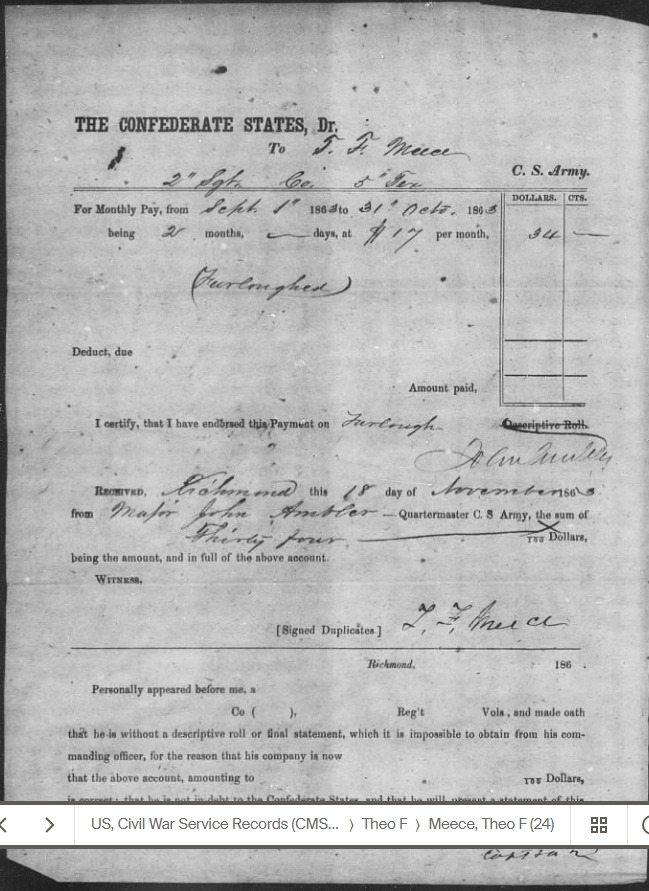 THE CONFEDERATE STATES, Dr.
To T. F. Meece
2" Sgt. Co. 5" Tex C. S. Army.
DOLLARS. CTS.
For Monthly Pay, from Sept. 1" 1863 to 31" Octo. 1863
being 2 months, — days, at $17 per month, 34 —
(Furloughed)
Deduct, due
Amount paid,
I certify, that I have endorsed this Payment on Furlough Descriptive Roll.
John Ambler
RECEIVED, Richmond this 18 day of November 1863
from Major John Ambler Quartermaster C. S Army, the sum of
Thirty four 100 Dollars,
being the amount, and in full of the above account.
WITNESS.
[Signed Duplicates.] T. F. Meece
Richmond, 186 .
Personally appeared before me, a
Co ( ), Reg't Vols, and made oath
that he is without a descriptive roll or final statement, which it is impossible to obtain from his com-
manding officer, for the reason that his company is now
that the above account, amounting to 100 Dollars,
is correct; that he is not in debt to the Confederate States, and that he will present a statement of this
US, Civil War Service Records (CMS... 〉 Theo F 〉 Meece, Theo F (24)